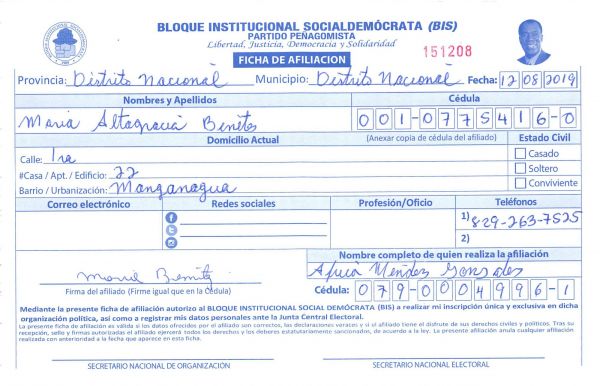 BLOQUE INSTITUCIONAL SOCIALDEMÓCRATA (BIS)
PARTIDO PEÑAGOMISTA
Libertad, Justicia, Democracia y Solidaridad
151208
FICHA DE AFILIACION
Provincia: Distrito Nacional Municipio: Distrito Nacional Fecha: 12 08 2019
Nombres y Apellidos Cédula
Maria Altagracia Benites 001-0775416-0
Domicilio Actual (Anexar copia de cédula del afiliado) Estado Civil
Calle: 1ra Casado
#Casa / Apt. / Edificio: 22 Soltero
Barrio / Urbanización: Manganagua Conviviente
Correo electrónico Redes sociales Profesión/Oficio Teléfonos
1) 829-263-7525
2)
Nombre completo de quien realiza la afiliación
Africa Méndez Gonzales
Maria
Firma del afiliado (Firme igual que en la Cédula) Cédula: 079-0004996-1
Mediante la presente ficha de afiliación autorizo al BLOQUE INSTITUCIONAL SOCIAL DEMÓCRATA (BIS) a realizar mi inscripción única y exclusiva en dicha
organización política, así como a registrar mis datos personales ante la Junta Central Electoral.
La presente ficha de afiliación es válida si los datos ofrecidos por el afiliado son correctos, las declaraciones veraces y si el afiliado tiene el disfrute de sus derechos civiles y políticos. Tras su
recepción, sello y firmas autorizadas el afiliado ejercerá todos los derechos y los deberes estatutariamente sancionados, de acuerdo a la ley. La presente afiliación anula cualquier afiliación
realizada con anterioridad a la fecha que aparece en esta ficha.
SECRETARIO NACIONAL DE ORGANIZACIÓN SECRETARIO NACIONAL ELECTORAL